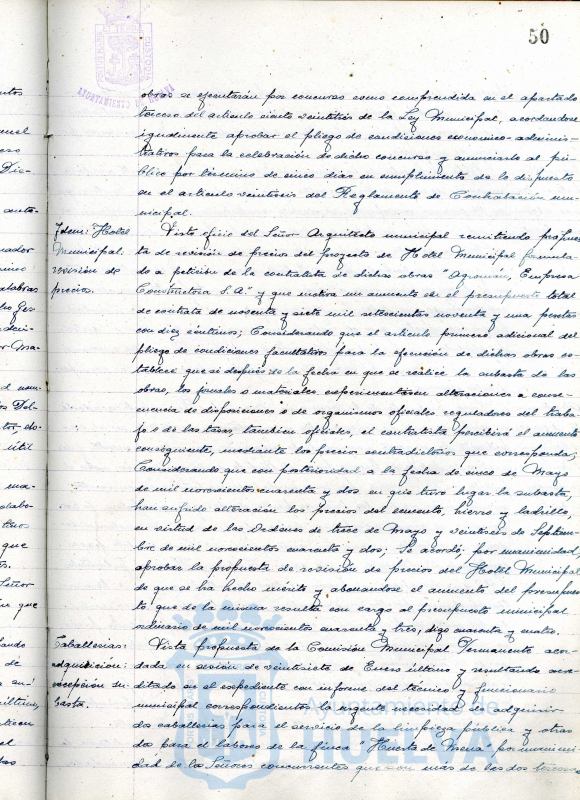 50
AYUNTAMIENTO DE HUELVA
obras se ejecutarán por concurso como comprendida en el apartado
tercero del artículo ciento veintitrés de la Ley Municipal, acordandose
igualmente aprobar el pliego de condiciones económico-adminis-
trativas para la celebración de dicho concurso y anunciarlo al pú-
blico por término de cinco días en cumplimiento de lo dispuesto
en el artículo veintiseis del Reglamento de Contratación mu-
nicipal.
Idem: Hotel
Municipal:
revisión de
precios.
Visto oficio del Señor Arquitecto municipal remitiendo propues-
ta de revisión de precios del proyecto de Hotel Municipal formula-
do a petición de la contratista de dichas obras "Agromán, Empresa
Constructora S.A." y que motiva un aumento en el presupuesto total
de contrata de noventa y siete mil setecientos noventa y una pesetas
con diez céntimos; Considerando que el artículo primero adicional del
pliego de condiciones facultativas para la ejecución de dichas obras es-
tablece que si después de la fecha en que se realice la subasta de las
obras, los jornales o materiales experimentasen alteraciones a conse-
cuencia de disposiciones o de organismos oficiales reguladores del traba-
jo o de las tasas, tambien oficiales, el contratista percibirá el aumento
consiguiente, mediante los precios contradictorios que corresponda;
Considerando que con posterioridad a la fecha de cinco de Mayo
de mil novecientos cuarenta y dos en que tuvo lugar la subasta,
han sufrido alteración los precios del cemento, hierro y ladrillo,
en virtud de las Ordenes de trece de Mayo y veintiseis de Septiem-
bre de mil novecientos cuarenta y dos; Se acordó, por unanimidad,
aprobar la propuesta de revisión de precios del Hotel Municipal
de que se ha hecho mérito y abonandose el aumento del presupues-
to que de la misma resulta con cargo al presupuesto municipal
ordinario de mil novecientos cuarenta y tres, digo cuarenta y cuatro.
Caballerías:
adquisición:
excepción su-
basta.
Vista propuesta de la Comisión Municipal Permanente acor-
dada en sesión de veintisiete de Enero último y resultando acre-
ditado en el expediente con informe del técnico y funcionario
municipal correspondiente la urgente necesidad de adquirir
dos caballerías para el servicio de la limpieza pública y otras
dos para el laboreo de la finca "Huerta de Mena" por unanimi-
dad de los Señores concurrentes que son más de las dos terceras
Ayuntamiento de
HUELVA